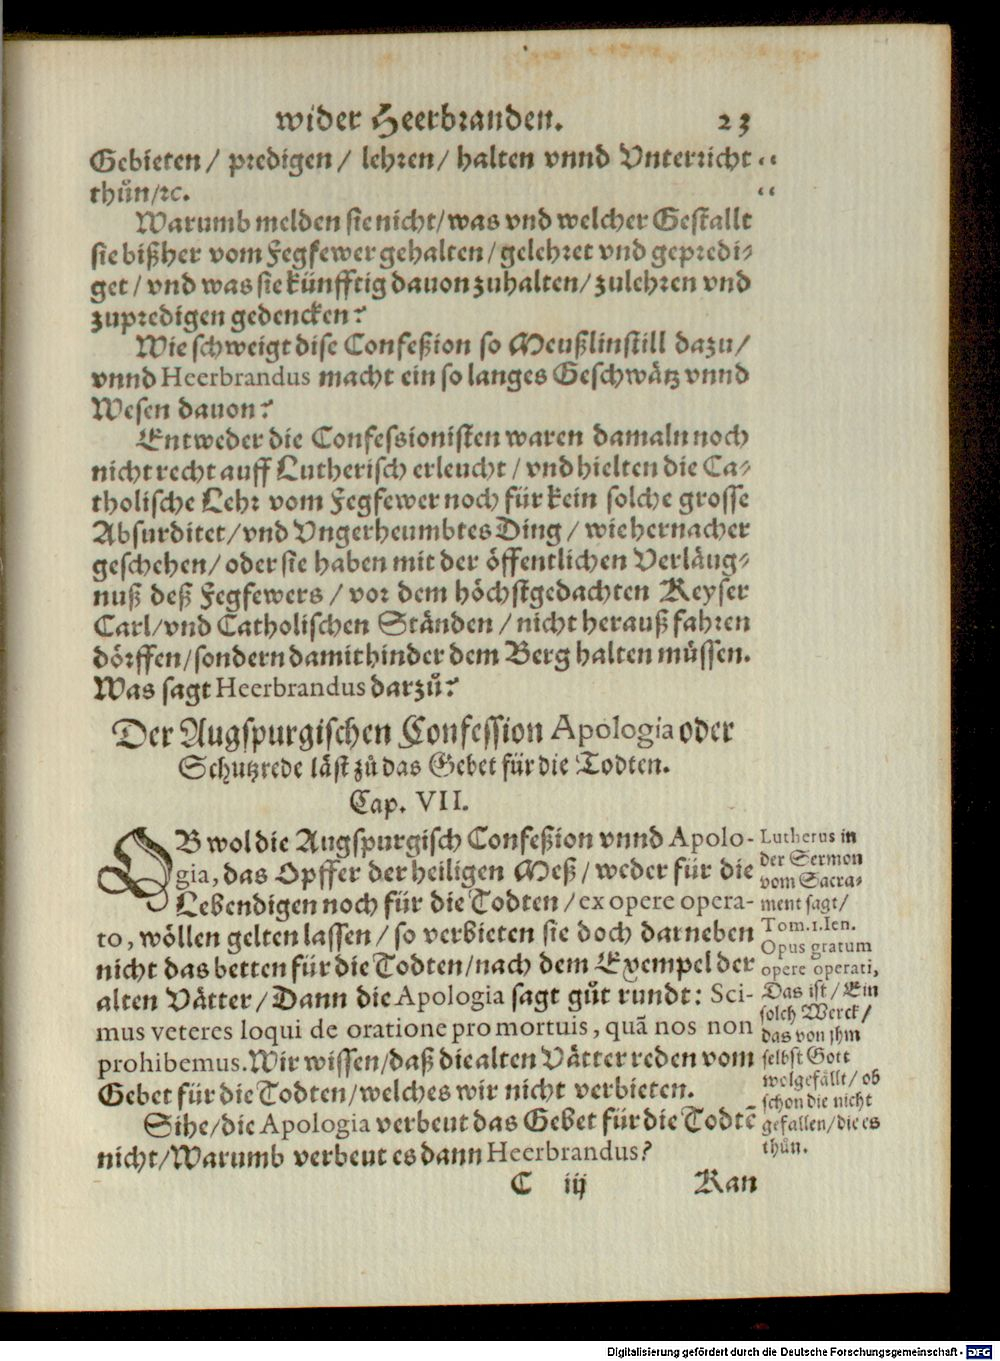 wider Heerbranden. 23
Gebieten/ predigen/ lehren/ halten vnnd Vnterricht
thůn/ꝛc.
Warumb melden sie nicht/was vnd welcher Gestallt
sie bißher vom Fegfewer gehalten/gelehret vnd gepredi-
get/vnd was sie künfftig dauon zuhalten/zulehren vnd
zupredigen gedencken?
Wie schweigt dise Confeßion so Meußlinstill dazu/
vnnd Heerbrandus macht ein so langes Geschwätz vnnd
Wesen dauon?
Entweder die Confessionisten waren damaln noch
nicht recht auff Lutherisch erleucht/vnd hielten die Ca-
tholische Lehr vom Fegfewer noch für kein solche grosse
Absurditet/vnd Vngerheumbtes Ding/ wie hernacher
geschehen/oder sie haben mit der öffentlichen Verläug-
nuß deß Fegfewers/vor dem höchstgedachten Keyser
Carl/vnd Catholischen Ständen/nicht herauß fahren
dörffen/sondern damit hinder dem Berg halten müssen.
Was sagt Heerbrandus darzů?
Der Augspurgischen Confession Apologia oder
Schutzrede läst zů das Gebet für die Todten.
Cap. VII.
OB wol die Augspurgisch Confeßion vnnd Apolo-
gia, das Opffer der heiligen Meß/weder für die
Lebendigen noch für die Todten/ex opere opera-
to, wöllen gelten lassen/so verbieten sie doch darneben
nicht das betten für die Todten/nach dem Exempel der
alten Vätter/Dann die Apologia sagt gůt rundt: Sci-
mus veteres loqui de oratione pro mortuis, quã nos non
prohibemus. Wir wissen/daß die alten Vätter reden vom
Gebet für die Todten/welches wir nicht verbieten.
Sihe/die Apologia verbeut das Gebet für die Todtẽ
nicht/Warumb verbeut es dann Heerbrandus?
Lutherus in
der Sermon
vom Sacra-
ment sagt/
Tom.1.Ien.
Opus gratum
opere operati,
Das ist/Ein
solch Werck/
das von jhm
selbst Gott
wolgefällt/ob
schon die nicht
gefallen/die es
thůn.
C iij Kan
Digitalisierung gefördert durch die Deutsche Forschungsgemeinschaft - DFG